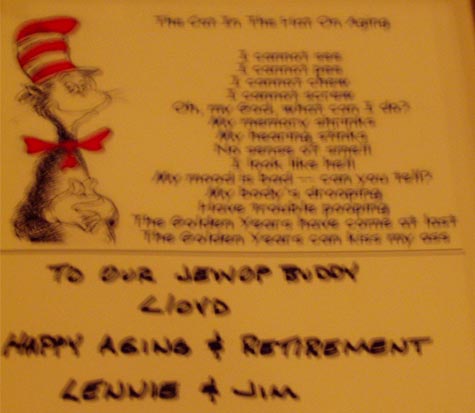 The Cat In The Hat On Aging
I cannot see
I cannot pee
I cannot chew
I cannot screw
Oh, my God, what can I do?
My memory shrinks
My hearing stinks
No sense of smell
I look like hell
My mood is bad -- can you tell?
My body's drooping
Have trouble pooping
The Golden Years have come at last
The Golden Years can kiss my ass
TO OUR JEWOP BUDDY
LLOYD
HAPPY AGING & RETIREMENT
LENNIE & JIM